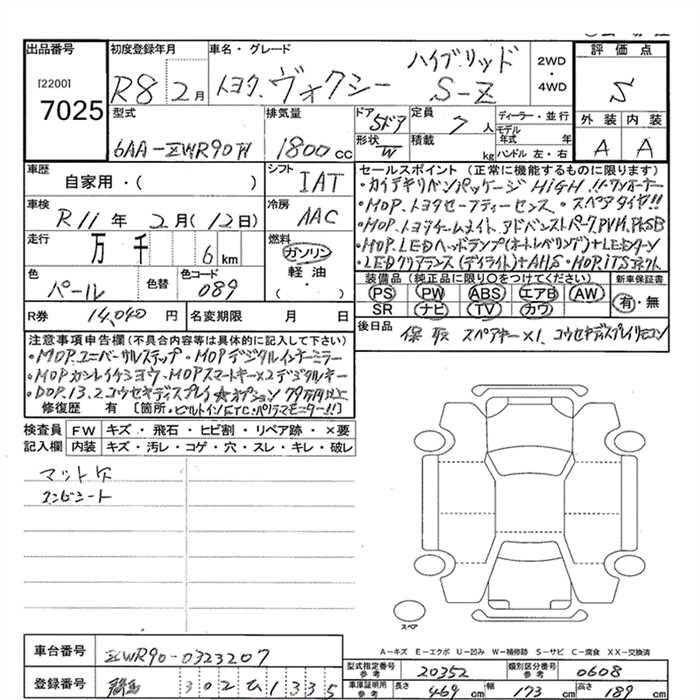 出品番号 初度登録年月 車名・グレード 2WD・4WD 評価点
[2200] 7025 R8 2月 トヨタ. ヴォクシー ハイブリッド S-Z S
型式 排気量 ドア 5ドア 定員 7人 ディーラー・並行 外装 内装
6AA-ZWR90W 1800cc 形状 W 積載 kg モデル年式 年 A A
ハンドル 左・右
車歴 シフト セールスポイント (正常に機能するものに限ります)
自家用・( ) IAT ・カイテキリベンパッケージHIGH!!・ワンオーナー
車検 冷房 ・MOP.トヨタセーフティーセンス・スペアタイヤ!!
R11年 2月(12日) AAC ・MOP.トヨタチームメイト アドバンストパーク,PVM,PKSB
走行 燃料 ・MOP.LEDヘッドランプ(オートレベリング)+LEDターン
万 千 6km ガソリン ・LEDクリアランス(デイライト)+AHS・MOP.ITSコネクト
色 色替 色コード 軽油 装備品 (純正品に限り○をつけてください) 新車保証書
パール 089 ・( ) PS PW ABS エアB AW 有・無
SR ナビ TV カワ
R券 14,040円 名変期限 月 日 後日品 保取 スペアキー×1. コウセキディスプレイリモコン
注意事項申告欄(不具合内容等は具体的に記入して下さい)
・MOP.ユニバーサルステップ・MOPデジタルインナーミラー
・MOPカンレイチシヨウ・MOPスマートキー×2デジタルキー
・DOP.13.2コウセキディスプレイ☆オプション79万円以上
修復歴 有 [箇所・ビルトインETC・パノラマモニター!!]
検査員記入欄 FW キズ・飛石・ヒビ割・リペア跡・×要
内装 キズ・汚レ・コゲ・穴・スレ・キレ・破レ
マットケ
コンビシート
スペア
A-キズ E-エクボ U-凹み W-補修跡 S-サビ C-腐食 XX-交換済
車台番号 ZWR90-0323207
型式指定番号 参考 20352 類別区分番号 参考 0608
登録番号 302 ひ 1335
車庫証明用 参考 長さ 469cm 幅 173cm 高さ 189cm